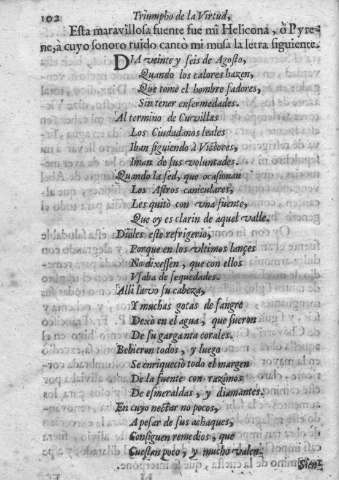 102 Triumpho de la Virtud,
Esta maravillosa fuente fue mi Helicona, ò Pyre-
ne, a cuyo sonoro ruido canto mi musa la letra siguiente.
DIA veinte y seis de Agosto,
Quando los calores hazen,
Que tome el hombre sudores,
Sin tener enfermedades.
Al termino de Curvillas
Los Ciudadanos leales
Iban siguiendo à Victores,
Iman de sus voluntades.
Quando la sed, que ocasionan
Los Astros caniculares,
Les quitò con vna fuente,
Que oy es clarin de aquel valle.
Dioles este refrigerio,
Porque en los vltimos lançes
No dixessen, que con ellos
Vsaba de sequedades.
Alli lavò su cabeza,
Y muchas gotas de sangre
Dexò en el agua, que fueron
De su garganta corales.
Bebieron todos, y luego
Se enriqueciò todo el margen
De la fuente con razimos
De esmeraldas, y diamantes.
En cuyo nectar no pocos,
A pesar de sus achaques,
Consiguen remedios, que
Cuestan poco, y mucho valen.
Sien-